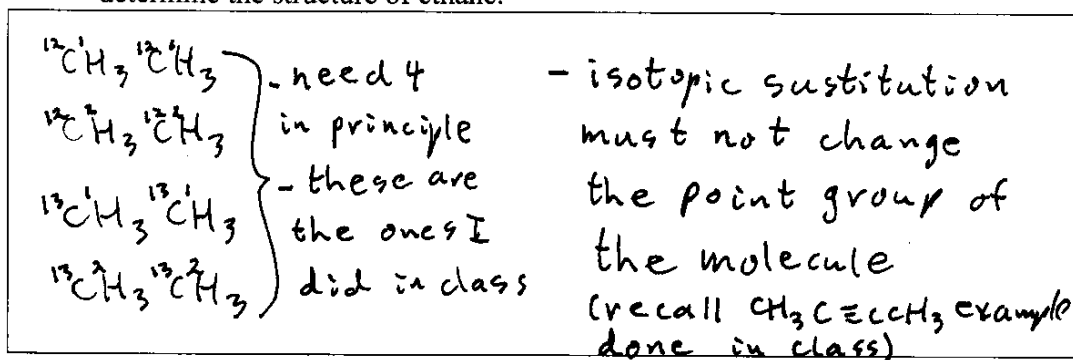 determine the structure of ethane.
¹²C¹H₃ ¹²C¹H₃
¹²C²H₃ ¹²C²H₃
¹³C¹H₃ ¹³C¹H₃
¹³C²H₃ ¹³C²H₃
- need 4
in principle
- these are
the ones I
did in class
- isotopic sustitution
must not change
the point group of
the molecule
(recall CH₃C≡CCH₃ example
done in class)